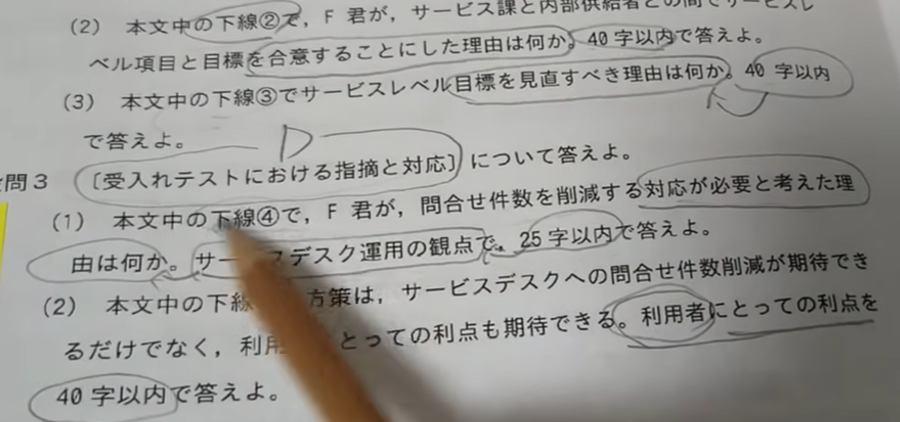 (2) 本文中の下線②で，F 君が，サービス課と内部供給者との間でサービスレ
ベル項目と目標を合意することにした理由は何か。40 字以内で答えよ。
(3) 本文中の下線③でサービスレベル目標を見直すべき理由は何か。40 字以内
で答えよ。
D
問3 〔受入れテストにおける指摘と対応〕について答えよ。
(1) 本文中の下線④で，F 君が，問合せ件数を削減する対応が必要と考えた理
由は何か。サービスデスク運用の観点で，25 字以内で答えよ。
(2) 本文中の下線 方策は，サービスデスクへの問合せ件数削減が期待でき
るだけでなく，利用 とっての利点も期待できる。利用者にとっての利点を
40 字以内で答えよ。